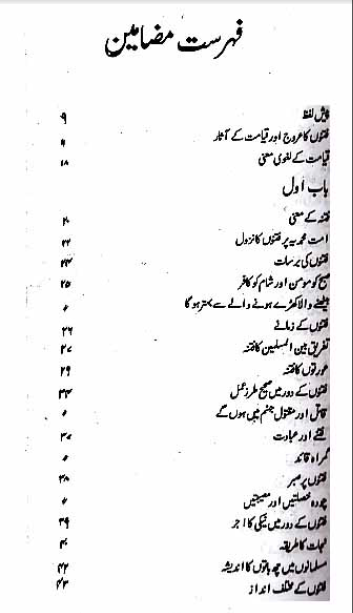 فہرست مضامین
پیش لفظ ۹
فتنوں کا عروج اور قیامت کے آثار ۹
قیامت کے لغوی معنی ۱۸
باب اول
فتنہ کے معنی ۲۰
امت محمدیہ پر فتنوں کا نزول ۲۲
فتنوں کی برسات ۲۳
صبح کو مومن اور شام کو کافر ۲۵
بیٹھنے والا کھڑے ہونے والے سے بہتر ہوگا ۰
فتنوں کے زمانے ۲۶
تفریق بین المسلمین کا فتنہ ۲۷
عورتوں کا فتنہ ۲۹
فتنوں کے دور میں صحیح طرز عمل ۳۳
قاتل اور مقتول جہنم میں ہوں گے ۰
فتنے اور عبادت ۳۷
گمراہ قائد ۰
فتنوں پر صبر ۳۸
چودہ خصلتیں اور مصیبتیں ۰
فتنوں کے دور میں نیکی کا اجر ۳۹
نجات کا طریقہ ۴۰
مسلمانوں میں چھ باتوں کا اندیشہ ۴۲
فتنوں کے مختلف انداز ۴۳